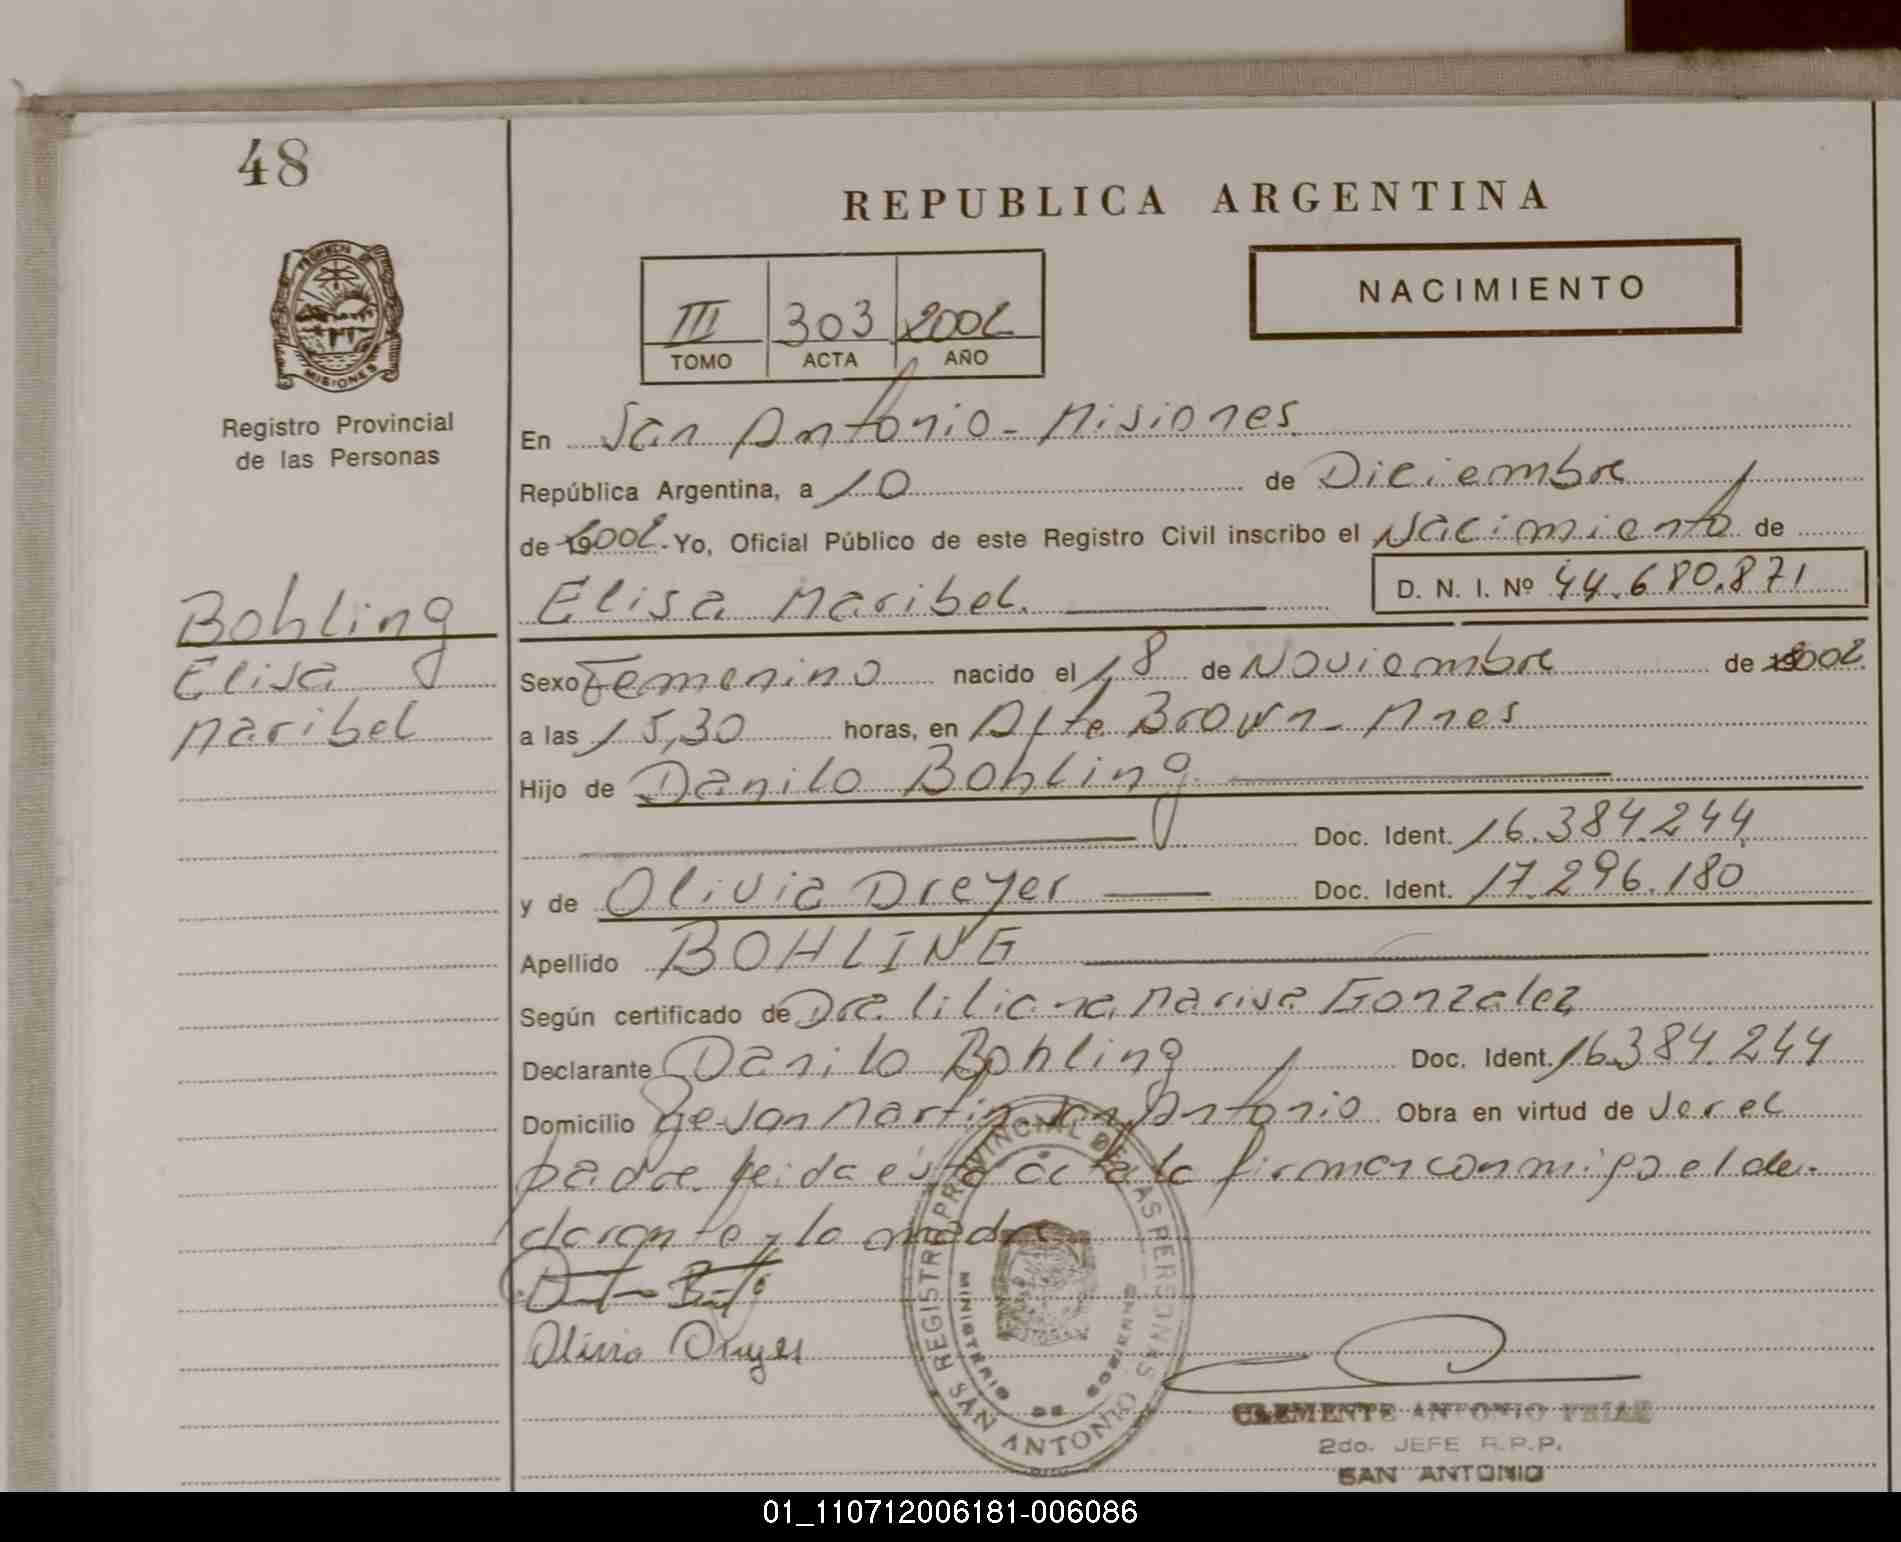 48
REPUBLICA ARGENTINA
NACIMIENTO
III 303 2002
TOMO ACTA AÑO
PROVINCIA DE
MISIONES
Registro Provincial
de las Personas
En San Antonio - Misiones
República Argentina, a 10 de Diciembre
de 2002 - Yo, Oficial Público de este Registro Civil inscribo el Nacimiento de
Elisa Maribel. D. N. I. Nº 44.680.871
Bohling
Elisa
Maribel
Sexo Femenino nacido el 18 de Noviembre de 2002
a las 15,30 horas, en Alte Brown - Mnes
Hijo de Danilo Bohling
Doc. Ident. 16.384.244
y de Olivia Dreyer Doc. Ident. 17.296.180
Apellido BOHLING
Según certificado de Dra. Liliana Marisa Gonzalez
Declarante Danilo Bohling Doc. Ident. 16.384.244
Domicilio San Martin San Antonio Obra en virtud de ser el
padre leida esta acta la firman conmigo el de-
clarante y la madre
Olivia Dreyer
REGISTRO PROVINCIAL DE LAS PERSONAS
MINISTERIO DE GOBIERNO
SAN ANTONIO
CLEMENTE ANTONIO
2do. JEFE R.P.P.
SAN ANTONIO
01_110712006181-006086